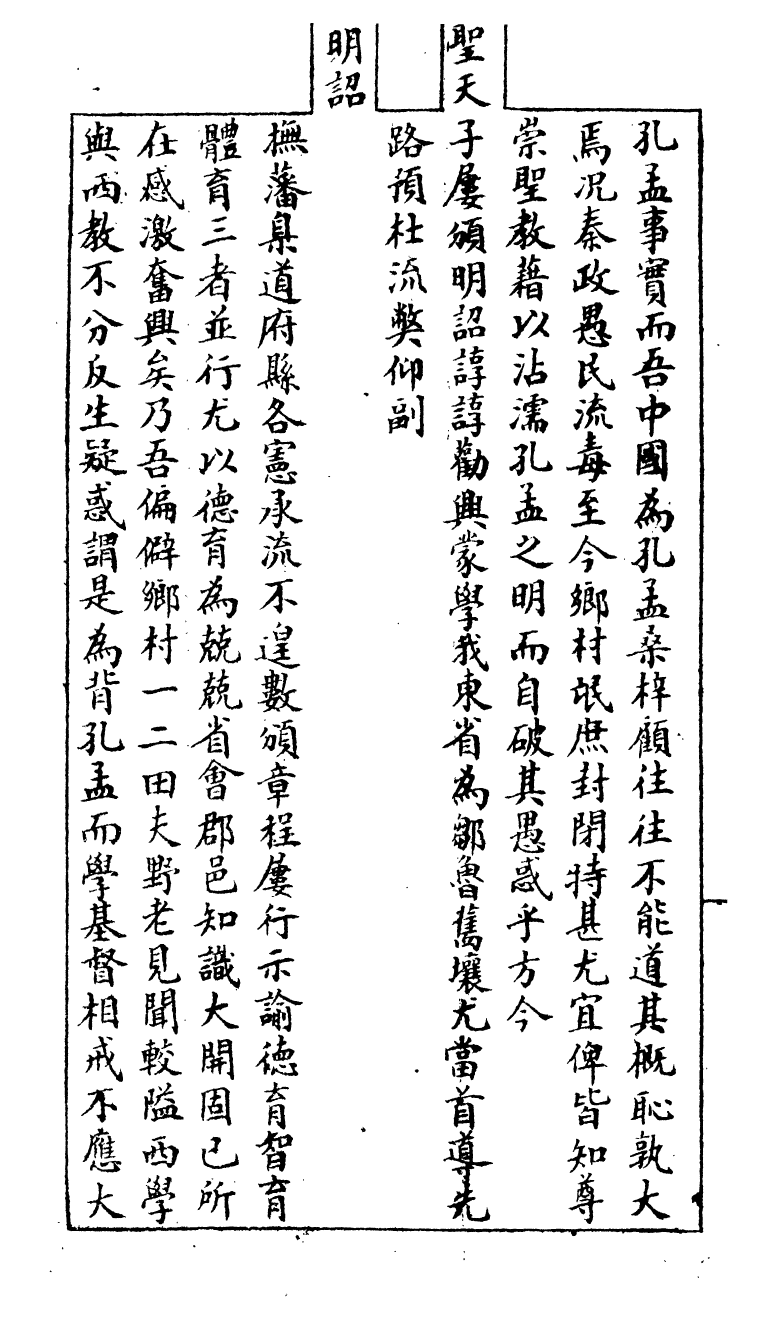 孔孟事實而吾中國為孔孟桑梓顧往往不能道其概恥孰大
焉况秦政愚民流毒至今鄉村氓庶封閉特甚尤宜俾皆知尊
崇聖教藉以沾濡孔孟之明而自破其愚惑乎方今
聖天子屢頒明詔諄諄勸興蒙學我東省為鄒魯舊壤尤當首導先
路預杜流弊仰副
明詔
撫藩臬道府縣各憲承流不遑數頒章程屢行示諭德育智育
體育三者並行尤以德育為兢兢省會郡邑知識大開固已所
在感激奮興矣乃吾偏僻鄉村一二田夫野老見聞較隘西學
與西教不分反生疑惑謂是為背孔孟而學基督相戒不應大